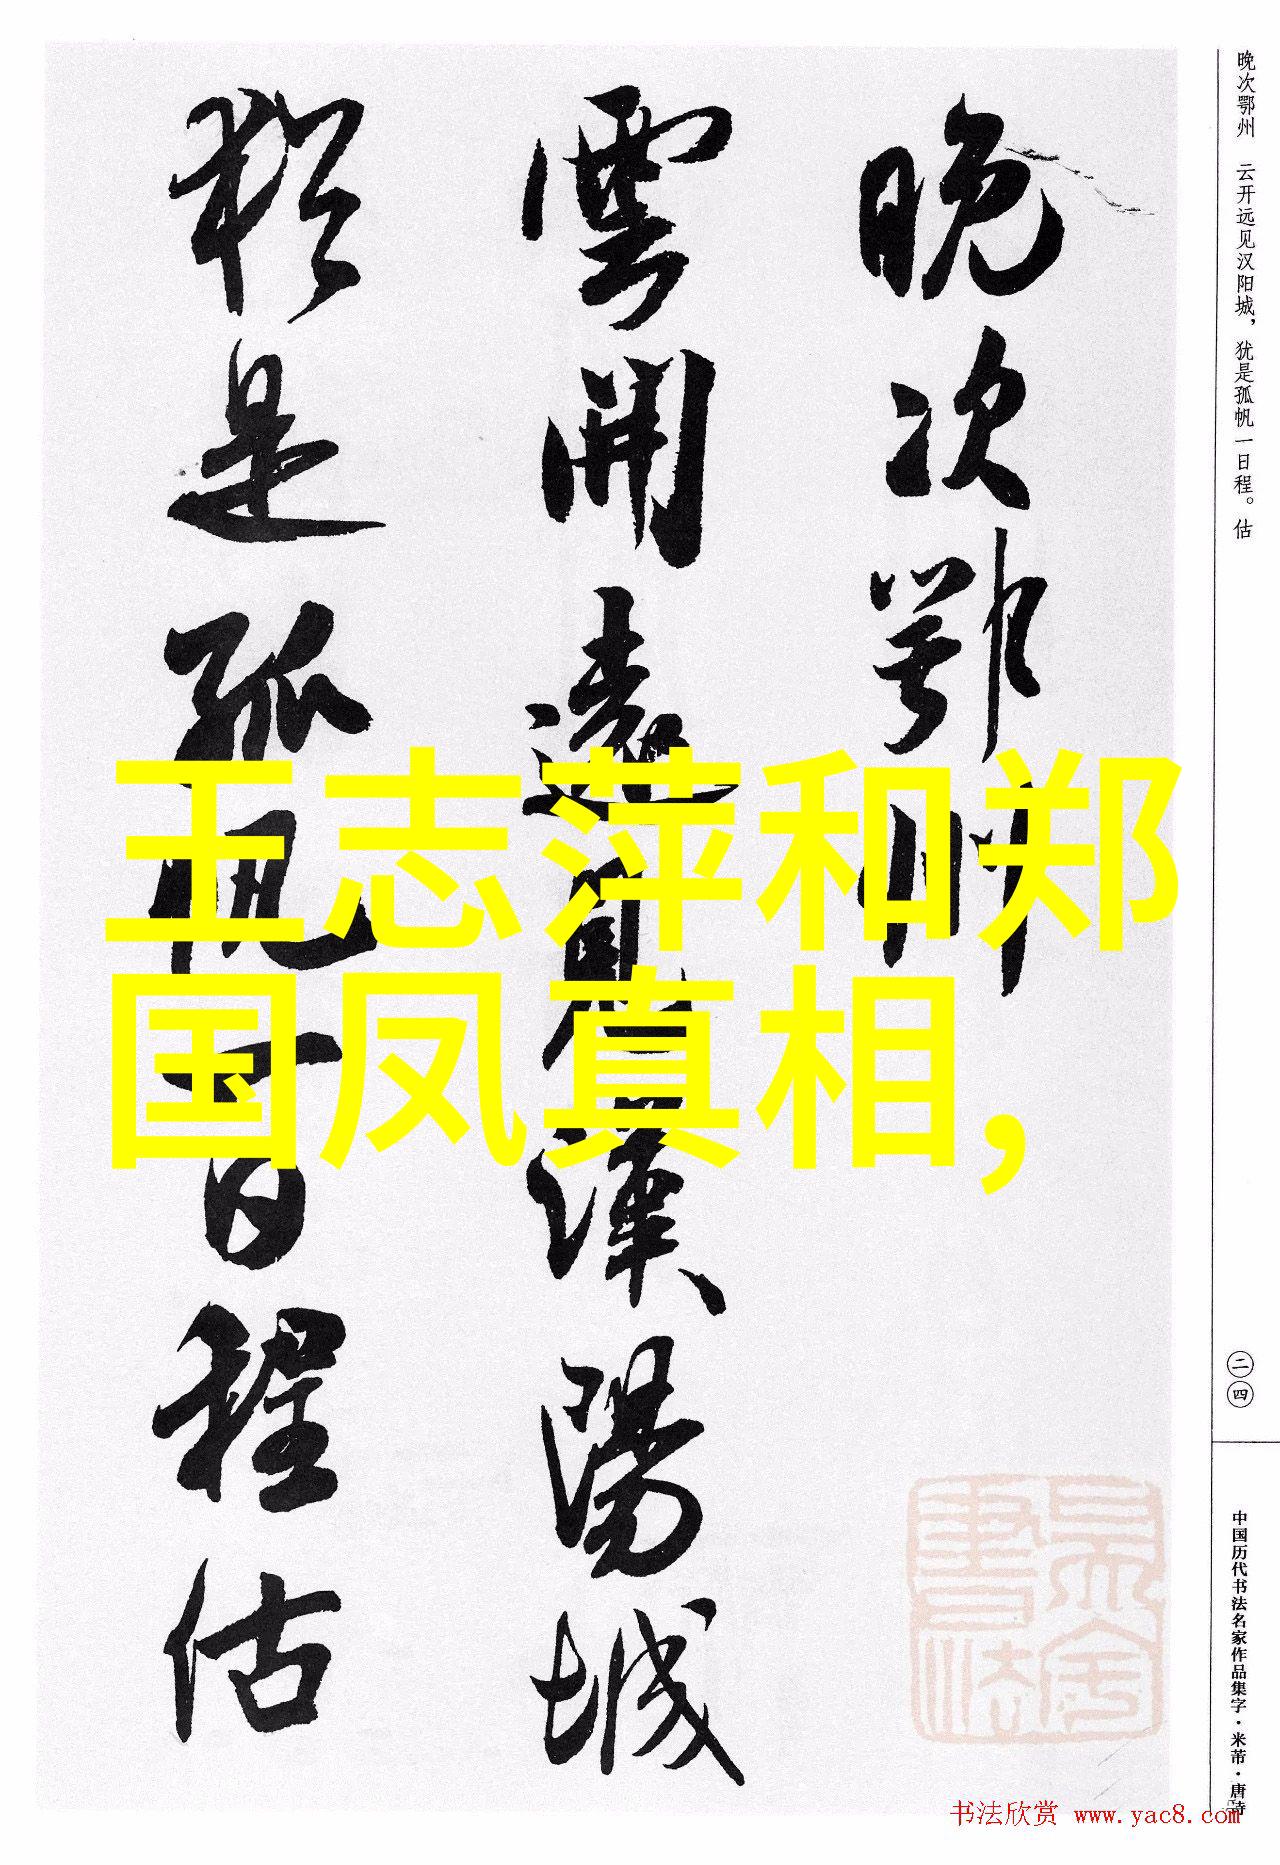 晚次鄂州
雲開遠見漢陽城
猶是孤帆一日程估
晚次鄂州 云开远见汉阳城，犹是孤帆一日程。估
二四
中国历代书法名家作品集字·米芾·唐诗
王志萍和郑
国凤真相,
书法欣赏 www.yac8.com